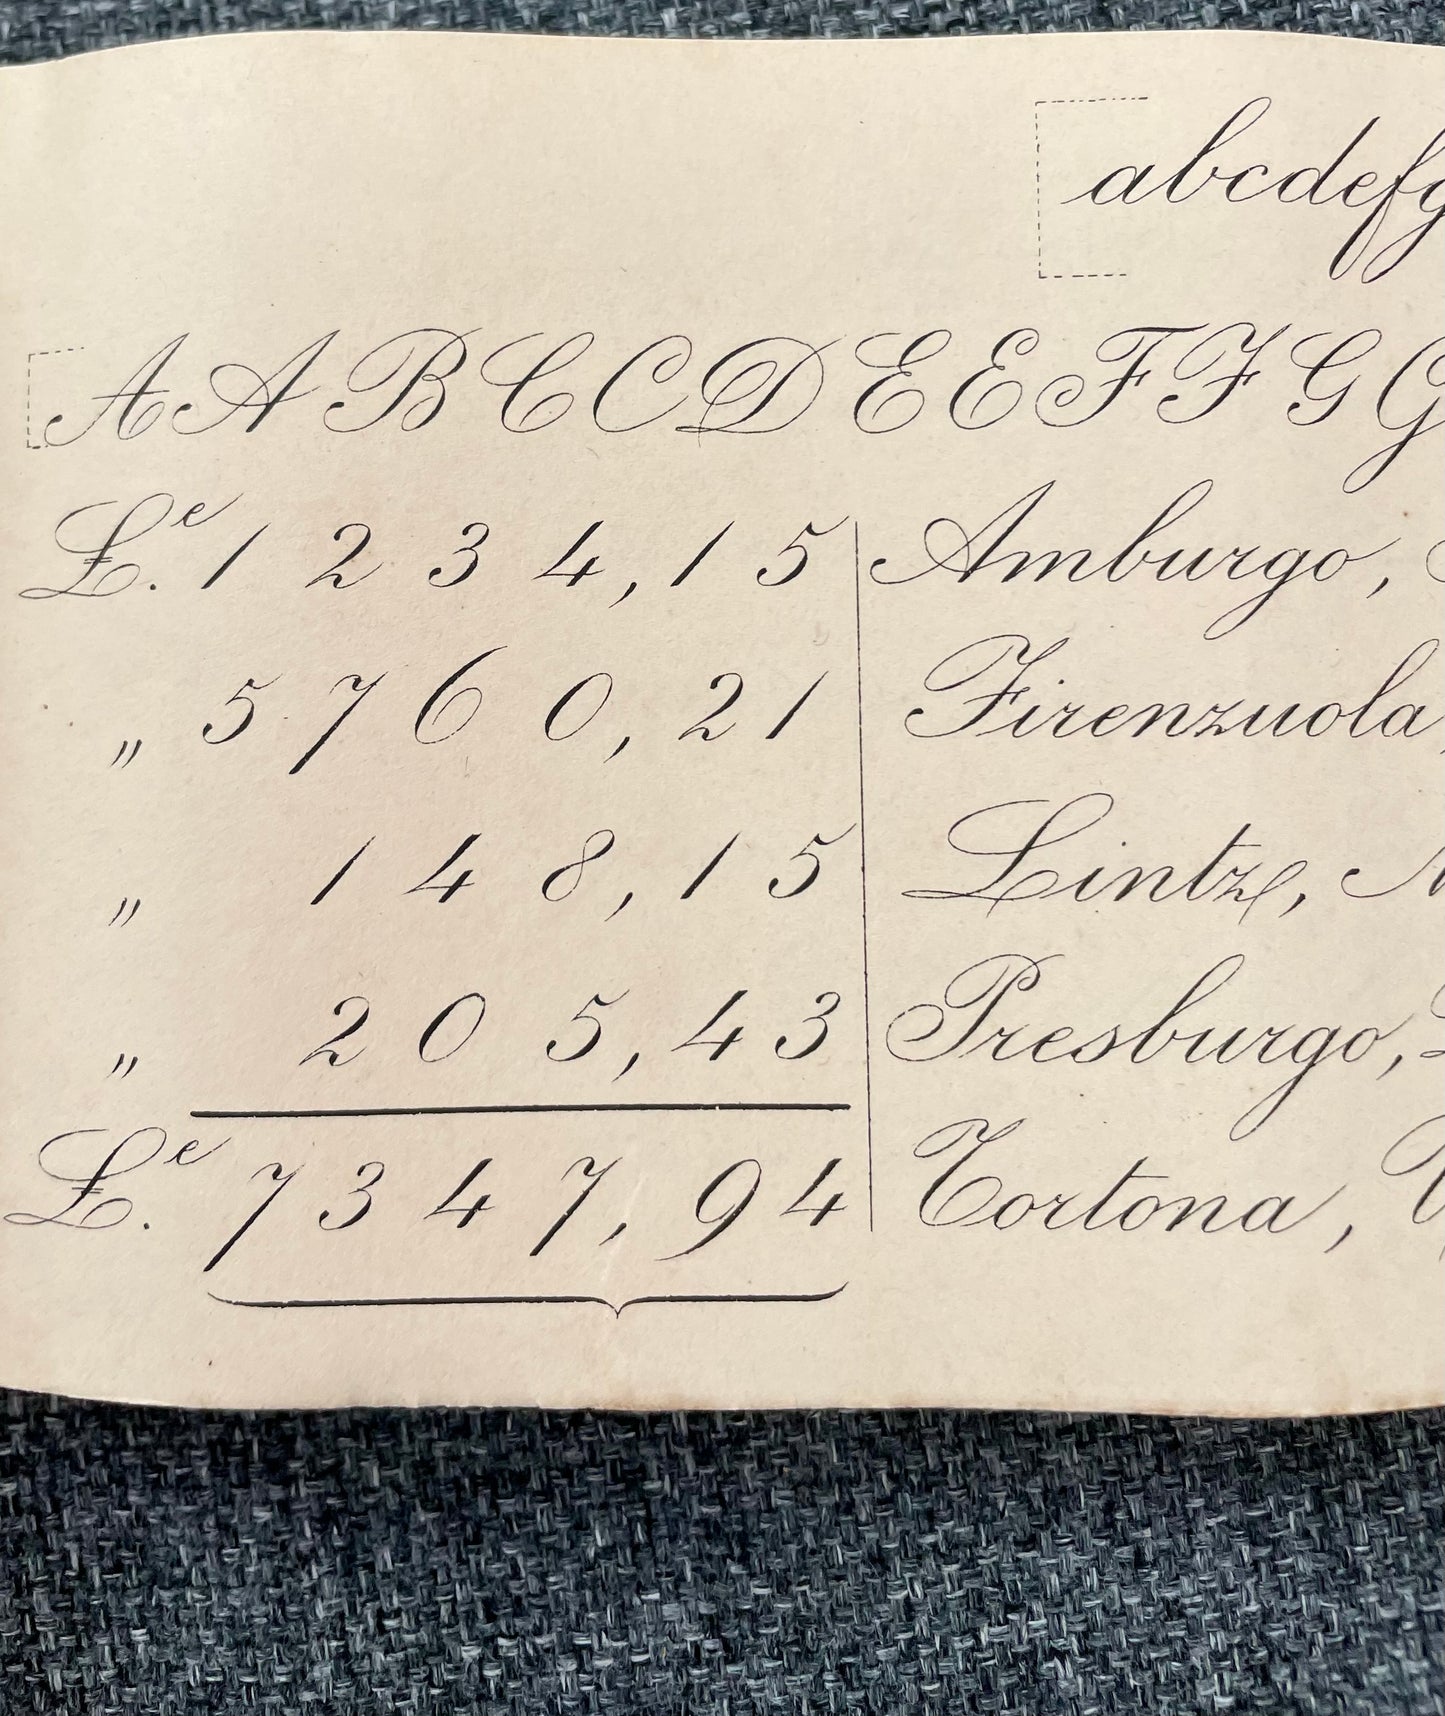 abcdefg
A A B C C D E E F F G G
L.e 1234,15 Amburgo,
„ 5760,21 Firenzuola,
„ 148,15 Lintz,
„ 205,43 Presburgo,
L.e 7347,94 Tortona,